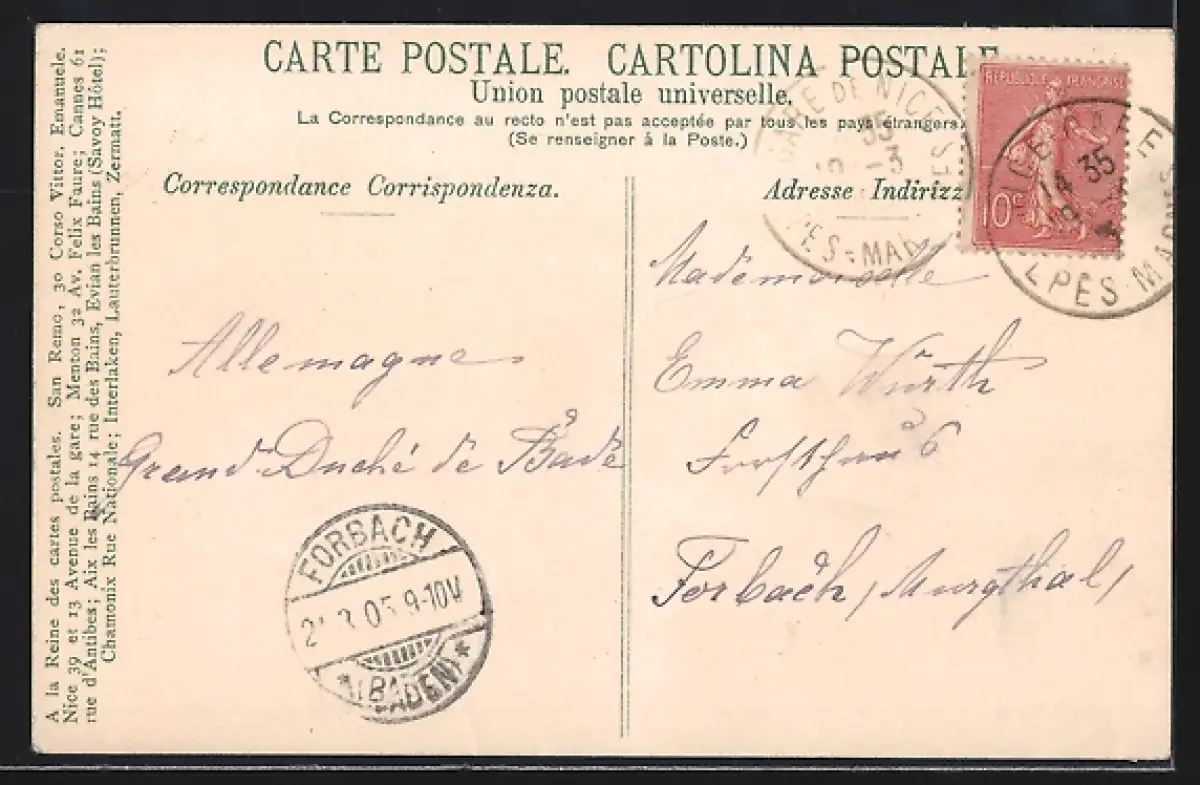 CARTE POSTALE. CARTOLINA POSTALE
Union postale universelle.
La Correspondance au recto n'est pas acceptée par tous les pays étrangers.
(Se renseigner à la Poste.)
Correspondance Corrispondenza.
Adresse Indirizz
REPUBLIQUE FRANÇAISE
10c
GARE DE NICE
35
-3
PES=MAR
NICE-GARE
14 35
19
ALPES-MARMES
Mademoiselle
Emma Würth
Forsthaus
Forbach, Murgthal,
Allemagne
Grand-Duché de Bade
FORBACH
21.3.05 9-10V
*(BADEN)*
A la Reine des cartes postales. San Remo, 30 Corso Vittor. Emanuele.
Nice 39 et 13 Avenue de la gare; Menton 32 Av. Felix Faure; Cannes 61
rue d'Antibes; Aix les Bains 14 rue des Bains, Evian les Bains (Savoy Hôtel);
Chamonix Rue Nationale; Interlaken, Lauterbrunnen, Zermatt.